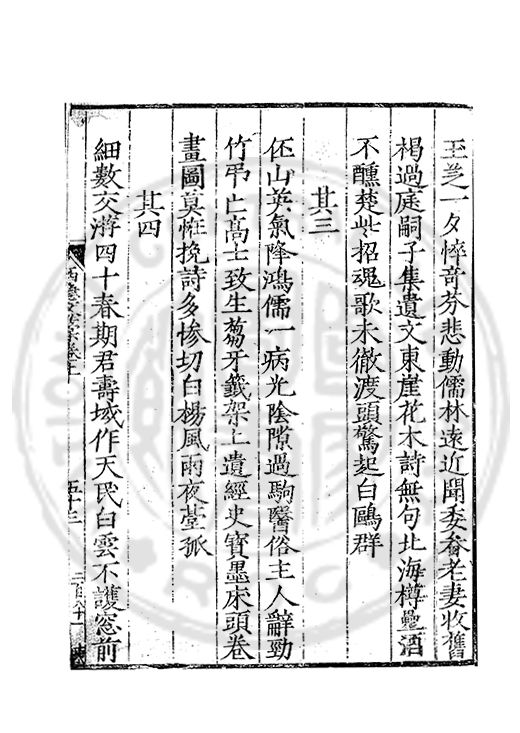 玉芝一夕悴奇芬悲動儒林遠近聞委眷老妻收舊
楬過庭嗣子集遺文東崖花木詩無句北海樽罍酒
不醺楚些招魂歌未徹渡頭驚起白鷗群
其三
伾山英氣降鴻儒一病光陰隙過駒醫俗主人辭勁
竹弔亡高士致生芻牙籤架上遺經史寶墨床頭卷
畫圖莫恠挽詩多慘切白楊風雨夜臺孤
其四
細數交游四十春期君壽域作天民白雲不護窓前
五十三